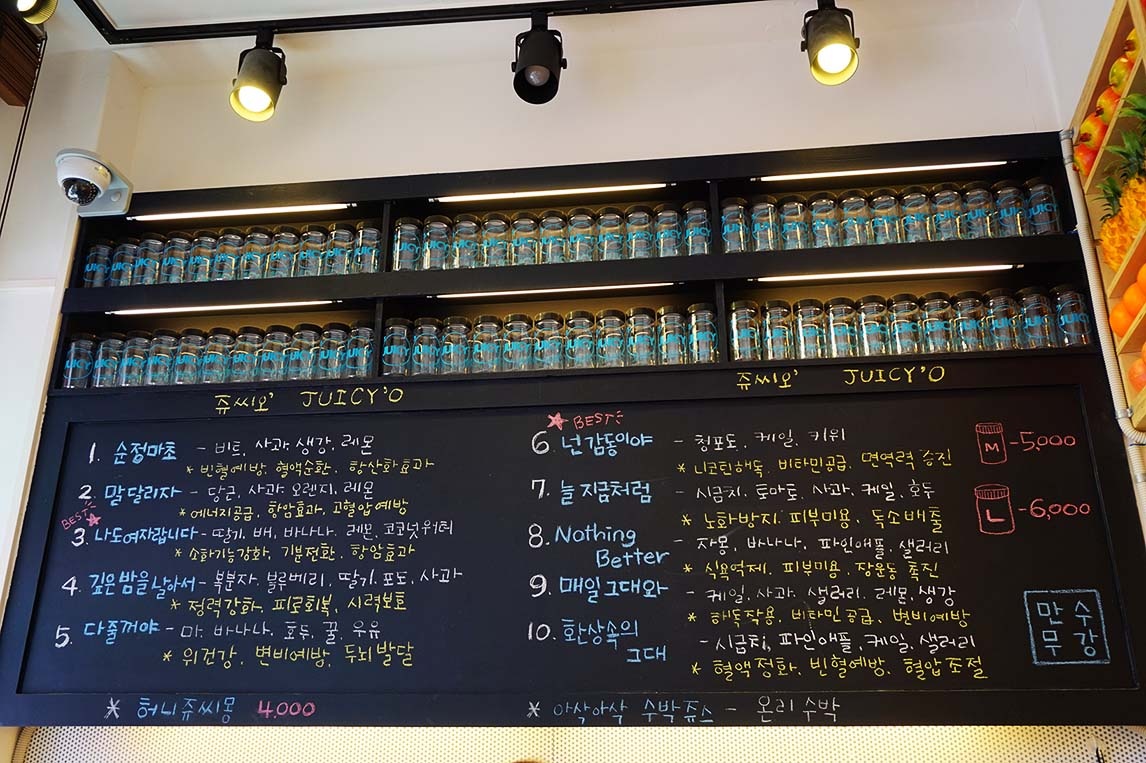 쥬씨오' JUICY'O
쥬씨오' JUICY'O
1. 순정마초 - 비트, 사과, 생강, 레몬
* 빈혈예방, 혈액순환, 항산화효과
2. 말달리자 - 당근, 사과, 오렌지, 레몬
* 에너지공급, 항암효과, 고혈압예방
BEST
3. 나도여자랍니다 - 딸기, 배, 바나나, 레몬, 코코넛워터
* 소화기능강화, 기분전환, 항암효과
4. 깊은밤을 날아서 - 복분자, 블루베리, 딸기, 포도, 사과
* 정력강화, 피로회복, 시력보호
5. 다줄꺼야 - 마, 바나나, 호두, 꿀, 우유
* 위건강, 변비예방, 두뇌발달
* 허니쥬씨몽 4.000
BEST!
6 넌감동이야 - 청포도, 케일, 키위
* 니코틴해독, 비타민공급, 면역력 증진
7. 늘 지금처럼 - 시금치, 토마토, 사과, 케일, 호두
* 노화방지, 피부미용, 독소배출
8. Nothing Better - 자몽, 바나나, 파인애플, 샐러리
* 식욕억제, 피부미용, 장운동 촉진
9. 매일그대와 - 케일, 사과, 샐러리, 레몬, 생강
* 해독작용, 비타민 공급, 변비예방
10. 환상속의 그대 - 시금치, 파인애플, 케일, 샐러리
* 혈액정화, 빈혈예방, 혈압조절
* 아삭아삭 수박쥬스 - 온리 수박
M - 5,000
L - 6,000
만수
무강